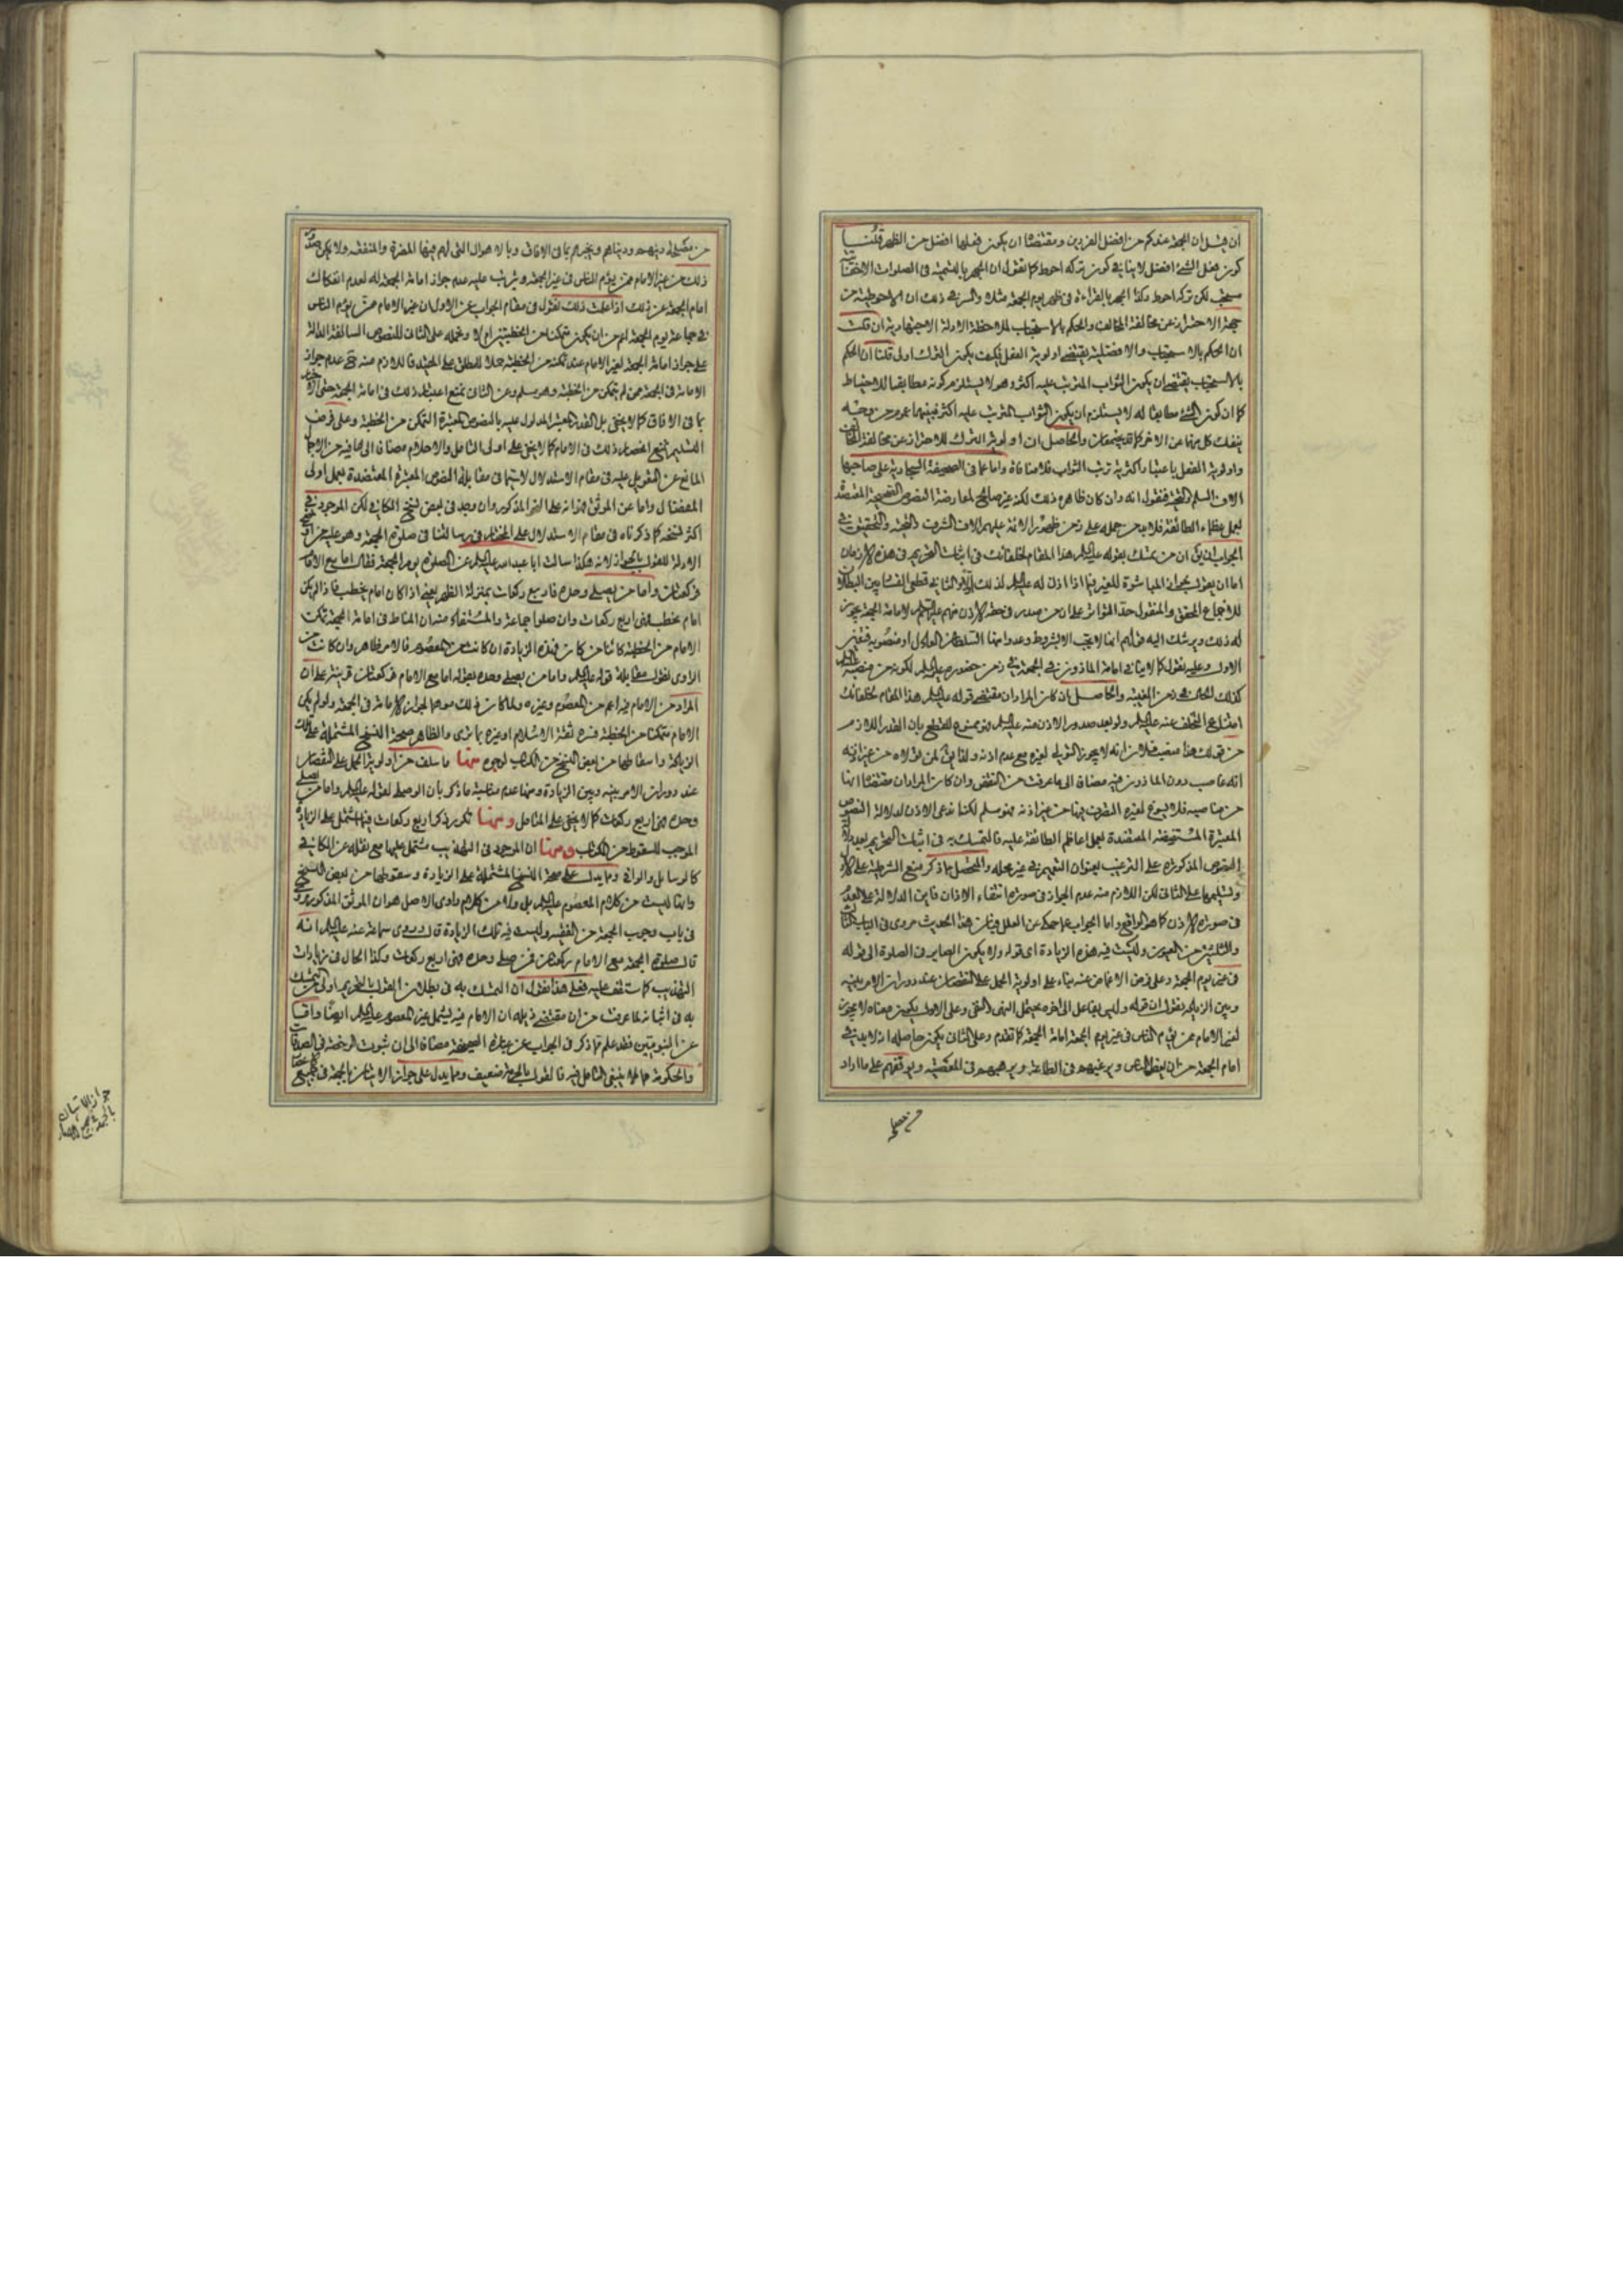 ان قيل ان الجمعة عندكم من افضل الفردين ومقتضاه ان يكون فعلها افضل من الظهر قلنا
كون فعل الشئ افضل لا ينافي كون تركه احوط كما نقول ان الجهر بالتسمية في الصلوات الاخفاتية
مستحب لكن تركه احوط وكذا الجهر بالقراءة في ظهر يوم الجمعة مثلا والسر في ذلك ان الاحوطية من
جهة الاحتراز عن مخالفة المخالف والحكم بالاستحباب لملاحظة الادلة الاجتهادية ان قلت
ان الحكم بالاستحباب والافضلية يقتضي اولوية الفعل فكيف يكون الترك اولى قلنا ان الحكم
بالاستحباب يقتضي ان يكون الثواب المترتب عليه اكثر وهو لا يستلزم كونه مطابقا للاحتياط
كما ان كون الشئ مطابقا له لا يستلزم ان يكون الثواب المترتب عليه اكثر فبينهما عموم من وجه
ينفك كل منهما عن الاخر كما قد يجتمعان والحاصل ان اولوية الترك للاحتراز عن مخالفة المخالف
واولوية الفعل باعتبار اكثرية ترتب الثواب فلا منافاة واما عما في الصحيفة السجادية على صاحبها
الاف السلم والتحية فنقول انه وان كان ظاهره ذلك لكنه غير صالح لمعارضة النصوص الصحيحة المعتضدة
بعمل عظماء الطائفة فلا بد من حمله على زمن ظهور الائمة عليهم الاف الشرف والتحية والتحقيق في
الجواب ان يق ان من تمسك بقوله عليه السلم هذا المقام لخلفائك في اثبات التحريم في هذه الازمان
اما ان يقول بجواز المباشرة للغير فيما اذا اذن له عليه السلم لذلك او لا والثاني قطعي الفساد بين البطلان
للاجماع المحقق والمنقول حد التواتر على ان من صدر في حقه الاذن منهم عليهم السلم لاقامة الجمعة يجوز
له ذلك ويرشدك اليه قولهم انما لا يجب الا بشروط وعدوا منها السلطان العادل او منصوبه فتعين
الاول وعليه نقول كما لا ينافي امامة الماذون في الجمعة في زمن حضوره عليه السلم لكونه من منصبه
كذلك الحال في زمن الغيبة والحاصل ان كان المراد ان مقتضى قوله عليه السلم هذا المقام لخلفائك
امتناع التخلف عنه عليه السلم ولو بعد صدور الاذن منه عليه السلم فهو ممنوع للقطع بان القدر اللازم
من قولك هذا منصب فلان انه لا يجوز التولي لغيره مع عدم اذنه ولذا يق لمن تولاه من غير اذنه
انه غاصب دون الماذون فيه مضافا الى ما عرفت من النقض وان كان المراد ان مقتضاه انها
من مناصبه فلا يسوغ لغيره التصرف فيها من غير اذنه فهو مسلم لكنا ندعي الاذن لدلالة النصوص
المعتبرة المستفيضة المعتضدة بعمل اعاظم الطائفة عليه فالتمسك به في اثبات التحريم بعد
النصوص المذكورة على الترغيب بعنوان التعميم في غير محله والمحصل مما ذكر منع الشرطية على
وتسليمها على الثاني لكن اللازم منه عدم الجواز في صورة انتفاء الاذن فاين الدلالة على العدم
في صورة الاذن كما هو الواقع واما الجواب عما حكي عن العلل فبان هذا الحديث مروي في الباب
والثلثين من العيون وليست فيه هذه الزيادة اي قوله ولا يكون الصاير في الصلوة الى قوله
في غير يوم الجمعة وعلى فرض الاغماض عنه بناء على اولوية الحمل على النقصان عند دوران الامر بينه
وبين الزيادة نقول ان قوله وليس بفاعل الى اخره يحتمل النهي والنفي وعلى الاول يكون معناه لا يجوز
لغير الامام ممن يؤم الناس في غير يوم الجمعة اقامة الجمعة كما تقدم وعلى الثاني يكون حاصله انه لا بد في
امام الجمعة من ان يعظ الناس ويرغبهم في الطاعة ويرهبهم في المعصية ويوقفهم على ما اراد
من مصلحة
من مصلحة دينهم ودنياهم ويخبرهم بما في الافاق وبالاهوال التي لهم فيها المضرة والمنفعة ولا يكون صدور
ذلك من غير الامام ممن يؤم الناس في غير الجمعة ويترتب عليه عدم جواز اقامة الجمعة له لعدم انفكاك
امام الجمعة عن ذلك اذا علمت ذلك نقول في مقام الجواب عن الاول ان غير الامام ممن يؤم الناس
في جماعة يوم الجمعة اعم من ان يكون متمكنا من الخطبتين ام لا ونحمله على الثاني للنصوص السالفة الدالة
على جواز اقامة الجمعة لغير الامام عند تمكنه من الخطبة حملا للمطلق على المقيد فاللازم منه عدم جواز
الامامة في الجمعة ممن لم يتمكن من الخطبة وهو مسلم وعن الثاني بمنع اعتبار ذلك في اقامة الجمعة حتى
بما في الافاق كما لا يخفى بل القدر المعتبر المدلول عليه بالنصوص المعتبرة التمكن من الخطبة وعلى فرض
التسليم نمنع انحصار ذلك في الامام كما لا يخفى على اولى التامل والاحلام مضافا الى ما فيه من الاجمال
المانع عن التعويل عليه في مقام الاستدلال لاسيما في مقابلة النصوص المعتبرة المعتضدة بعمل اولى
الفضل واما عن الموثق فبانه على النحو المذكور وان وجد في بعض نسخ الكافي لكن الموجود في
اكثر نسخه كما ذكرناه في مقام الاستدلال على المختار في رسالتنا في صلوة الجمعة وهو على
الادلة للقول بالجواز لانه هكذا سالت ابا عبد الله عليه السلم عن الصلوة يوم الجمعة فقال اما مع الامام
فركعتان واما من يصلي وحده فاربع ركعات بمنزلة الظهر يعني اذا كان امام يخطب فاذا لم يكن
امام يخطب فهي اربع ركعات وان صلوا جماعة والمستفاد منه ان المناط في اقامة الجمعة تمكن
الامام من الخطبة كائنا من كان فهذه الزيادة ان كانت من المعصوم فالامر ظاهر وان كانت من
الراوي نقول مقابلة قوله عليه السلم واما من يصلي وحده بقوله اما مع الامام فركعتان قرينة على ان
المراد من الامام فيه اعم من المعصوم وغيره ولما كان ذلك موهما لجواز الاقامة في الجمعة ولو لم يكن
الامام متمكنا من الخطبة فسره ثقة الاسلام او غيره بما ترى والظاهر صحة النسخ المشتملة على تلك
الزيادة واسقاطها من بعض النسخ من الكتاب لوجوه منها ما سلف من اولوية الحمل على النقصان
عند دوران الامر بينه وبين الزيادة ومنها عدم مناسبة ما ذكر بان الوسط لقوله عليه السلم واما من يصلي
وحده فهي اربع ركعات كما لا يخفى على المتامل ومنها تكرر ذكر اربع ركعات فيما اشتمل على الزيادة
الموجب للسقوط من الكتاب ومنها ان الموجود في التهذيب مشتمل عليها مع نقله عن الكافي
كالوسايل والوافي ومما يدل على صحة النسخ المشتملة على الزيادة وسقوطها من بعض النسخ
وانها ليست من كلام المعصوم عليه السلم بل ولا من كلام راوي الاصل هو ان الموثق المذكور مروي
في باب وجوب الجمعة من الفقيه وليست فيه تلك الزيادة قال وروى سماعة عنه عليه السلم انه
قال صلوة الجمعة مع الامام ركعتان فمن صلى وحده فهي اربع ركعات وكذا الحال في زيادات
التهذيب كما ستقف عليه فعلى هذا نقول ان التمسك به في بطلان القول بالتحريم اولى من التمسك
به في اثباته لما عرفت من ان مقتضى ذيله ان الامام فيه يشمل غير المعصوم عليه السلم ايضا واما
عن النبويتين فقد علم مما ذكر في الجواب عن عبارة الصحيفة مضافا الى ان ثبوت الرخصة في الصدقات
والحكومة مما لا ينبغي التامل فيه فالقول بالحرمة ضعيف ومما يدل على جواز الاتيان بالجمعة في جميع
جواز الاتيان
بالجمعة في جميع